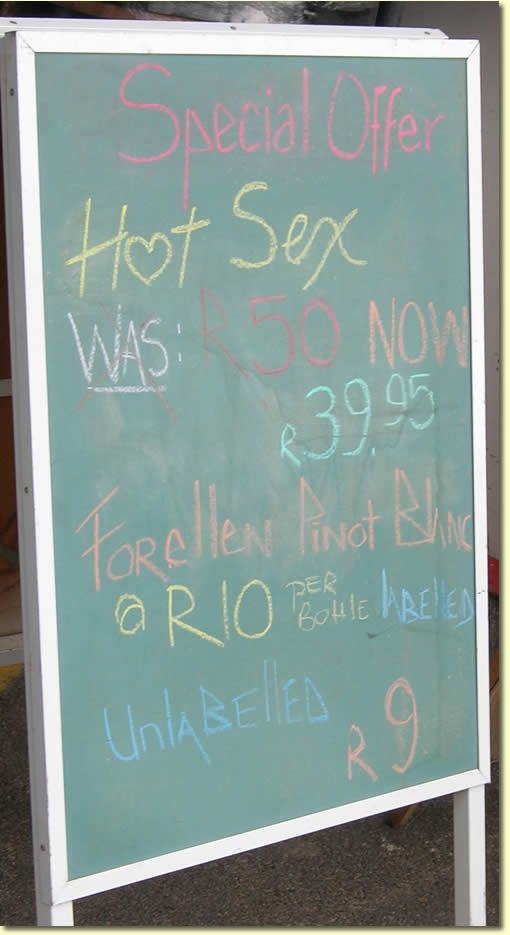 Special Offer
Hot Sex
WAS: R50 NOW
R39.95
Forellen Pinot Blanc
@ R10 PER BOttlE lABEllED
UnlABEllED R9